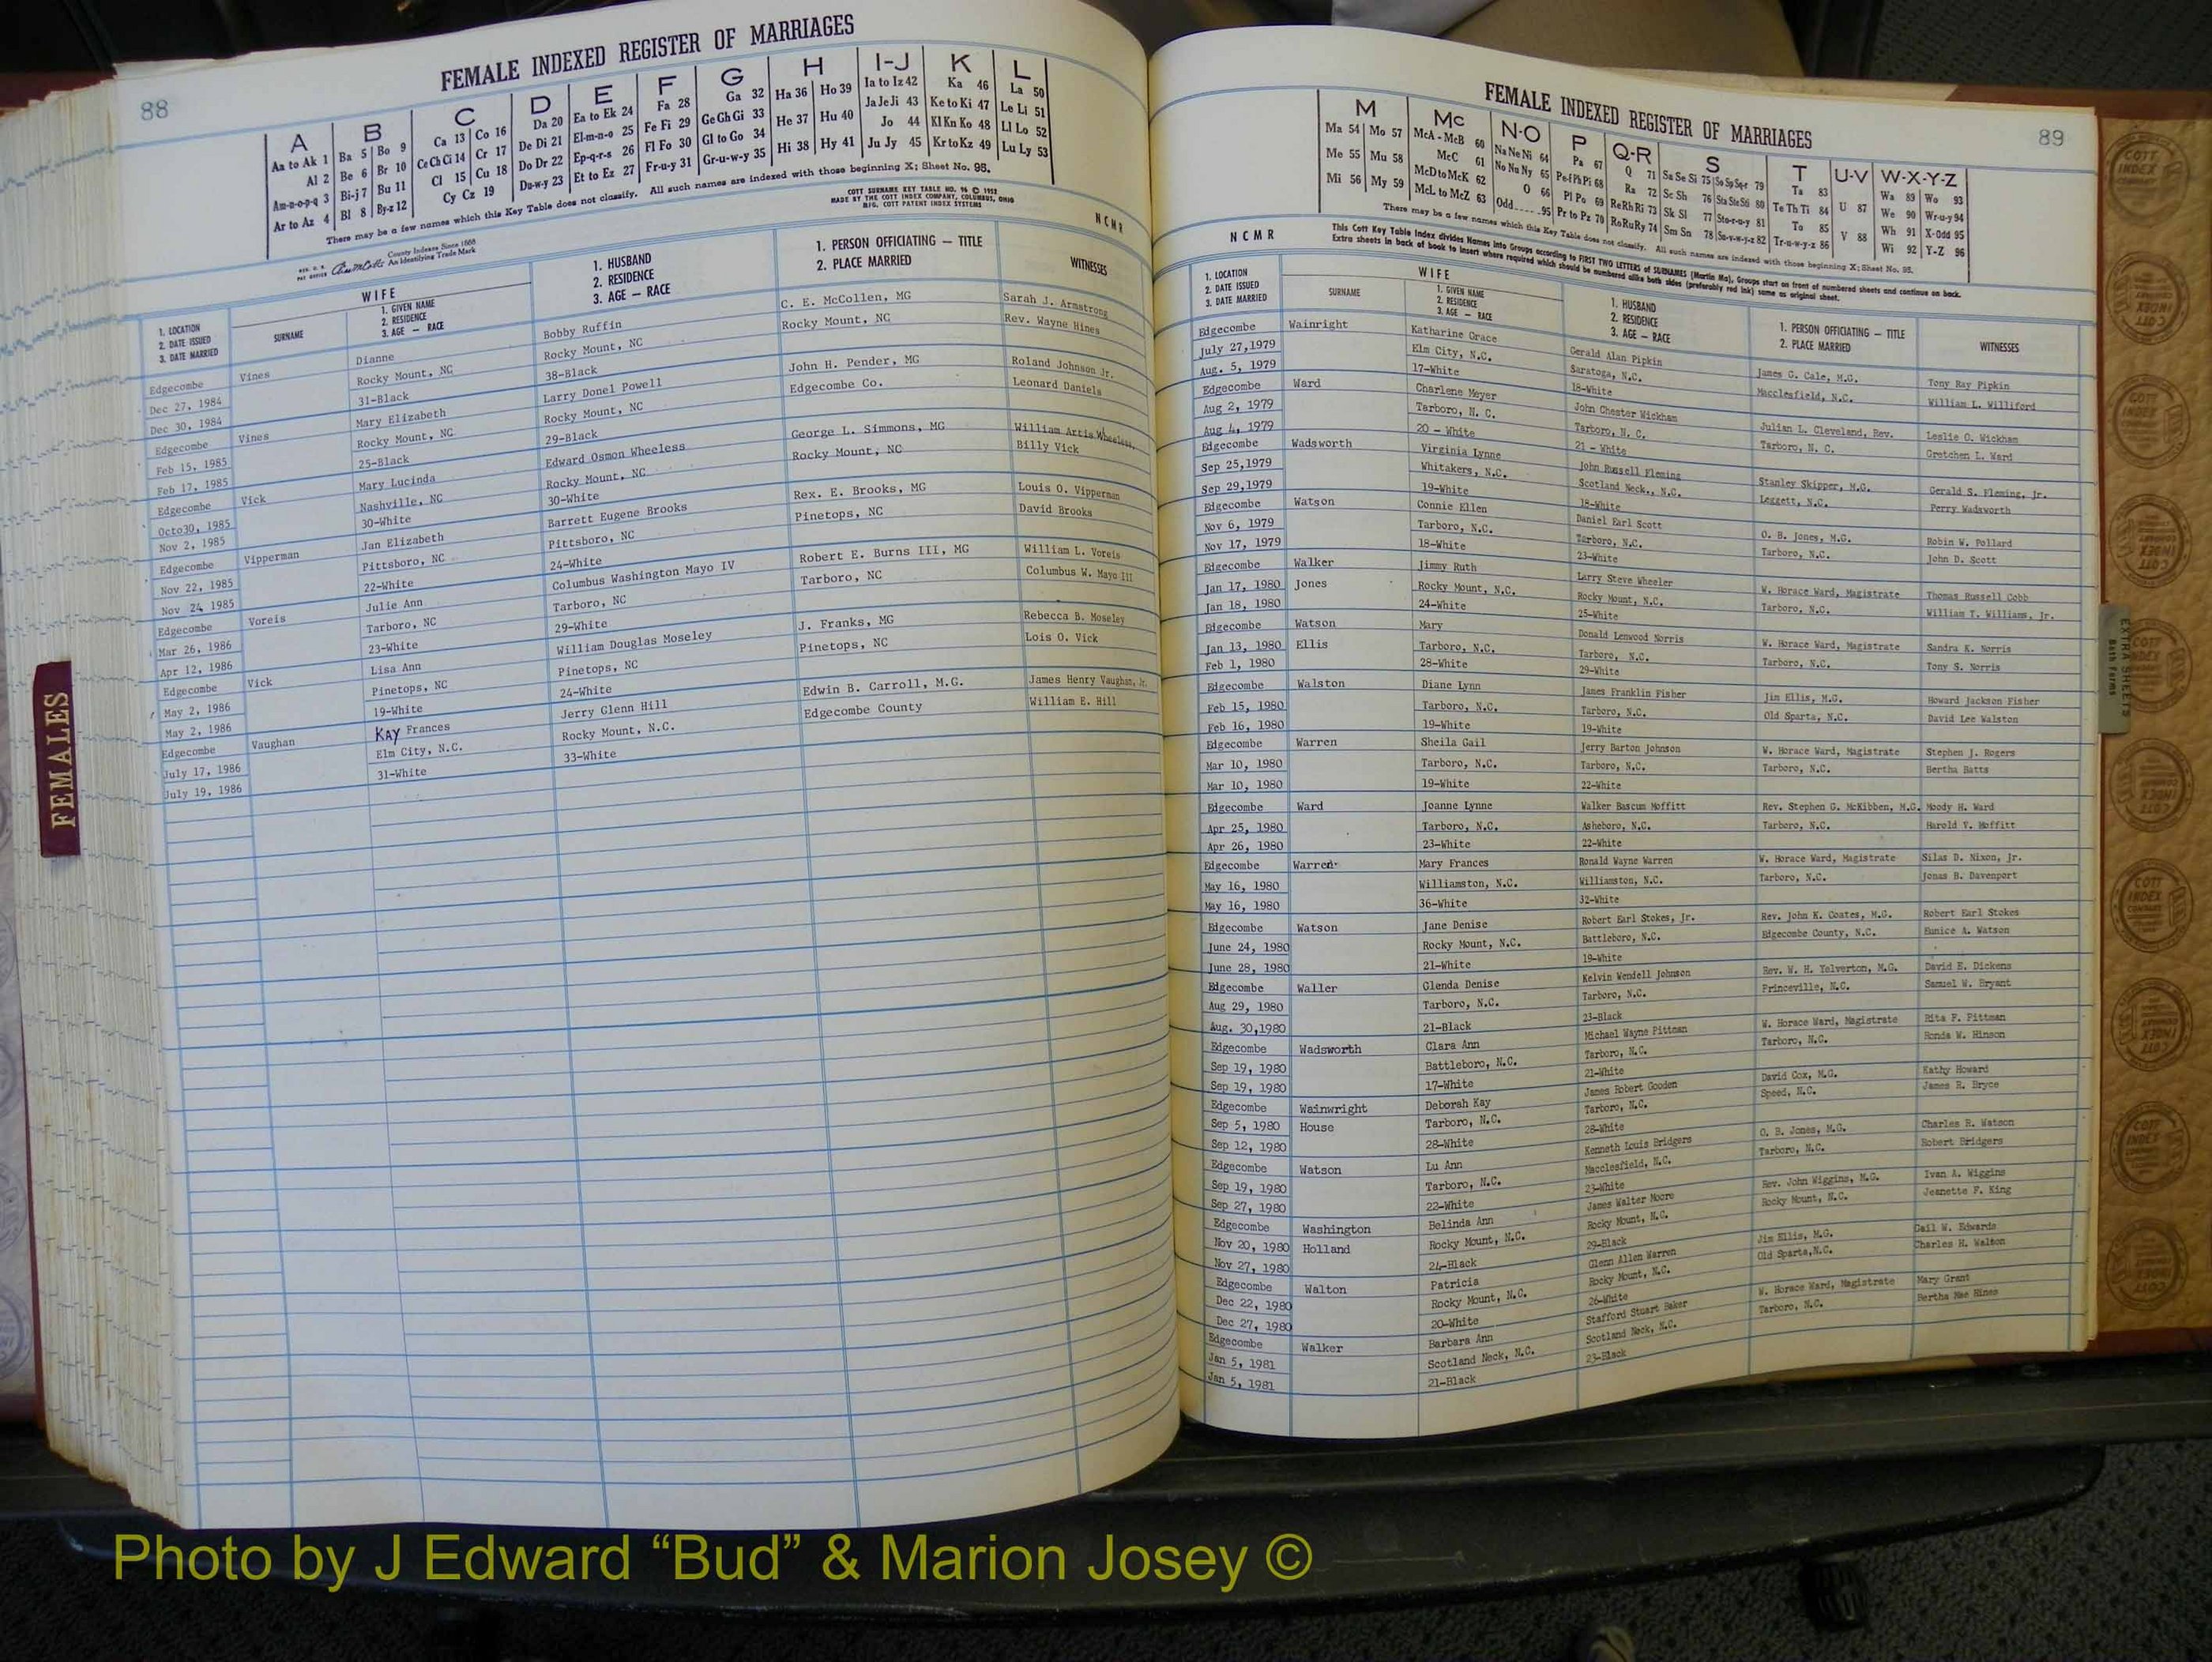 88
FEMALE INDEXED REGISTER OF MARRIAGES
A B C D E F G H I-J K L
Aa to Ak 1 Ba 5 Bo 9 Ca 13 Co 16 Da 20 Ea to Ek 24 Fa 28 Ga 32 Ha 36 Ho 39 Ia to Iz 42 Ka 46 La 50
Al 2 Be 6 Br 10 Ce Ch Ci 14 Cr 17 De Di 21 El-m-n-o 25 Fe Fi 29 Ge Gh Gi 33 He 37 Hu 40 Ja Je Ji 43 Ke to Ki 47 Le Li 51
Am-n-o-p-q 3 Bi-j 7 Bu 11 Cl 15 Cu 18 Do Dr 22 Ep-q-r-s 26 Fl Fo 30 Gl to Go 34 Hi 38 Hy 41 Jo 44 Kl Kn Ko 48 Ll Lo 52
Ar to Az 4 Bl 8 By-z 12 Cy Cz 19 Du-w-y 23 Et to Ez 27 Fr-u-y 31 Gr-u-w-y 35 Ju Jy 45 Kr to Kz 49 Lu Ly 53
There may be a few names which this Key Table does not classify. All such names are indexed with those beginning X; Sheet No. 95.
County Indexes Since 1888
An Identifying Trade Mark
COTT SURNAME KEY TABLE NO. 96 © 1952
MADE BY THE COTT INDEX COMPANY, COLUMBUS, OHIO
MFG. COTT PATENT INDEX SYSTEMS
N C M R
1. LOCATION
2. DATE ISSUED
3. DATE MARRIED
WIFE
SURNAME
1. GIVEN NAME
2. RESIDENCE
3. AGE — RACE
1. HUSBAND
2. RESIDENCE
3. AGE — RACE
1. PERSON OFFICIATING — TITLE
2. PLACE MARRIED
WITNESSES
Edgecombe Vines Dianne Bobby Ruffin C. E. McCollen, MG Sarah J. Armstrong
Dec 27, 1984 Rocky Mount, NC Rocky Mount, NC Rocky Mount, NC Rev. Wayne Hines
Dec 30, 1984 31-Black 38-Black
Edgecombe Vines Mary Elizabeth Larry Donel Powell John H. Pender, MG Roland Johnson Jr.
Feb 15, 1985 Rocky Mount, NC Rocky Mount, NC Edgecombe Co. Leonard Daniels
Feb 17, 1985 25-Black 29-Black
Edgecombe Vick Mary Lucinda Edward Osmon Wheeless George L. Simmons, MG William Artis Wheeless,
Octo30, 1985 Nashville, NC Rocky Mount, NC Rocky Mount, NC Billy Vick
Nov 2, 1985 30-White 30-White
Edgecombe Vipperman Jan Elizabeth Barrett Eugene Brooks Rex. E. Brooks, MG Louis O. Vipperman
Nov 22, 1985 Pittsboro, NC Pittsboro, NC Pinetops, NC David Brooks
Nov 24, 1985 22-White 24-White
Edgecombe Voreis Julie Ann Columbus Washington Mayo IV Robert E. Burns III, MG William L. Voreis
Mar 26, 1986 Tarboro, NC Tarboro, NC Tarboro, NC Columbus W. Mayo III
Apr 12, 1986 23-White 29-White
Edgecombe Vick Lisa Ann William Douglas Moseley J. Franks, MG Rebecca B. Moseley
May 2, 1986 Pinetops, NC Pinetops, NC Pinetops, NC Lois O. Vick
May 2, 1986 19-White 24-White
Edgecombe Vaughan KAY Frances Jerry Glenn Hill Edwin B. Carroll, M.G. James Henry Vaughan, Jr.
July 17, 1986 Elm City, N.C. Rocky Mount, N.C. Edgecombe County William E. Hill
July 19, 1986 31-White 33-White
FEMALES
FEMALE INDEXED REGISTER OF MARRIAGES
89
M Mc N-O P Q-R S T U-V W-X-Y-Z
Ma 54 Mo 57 McA - McB 60 Na Ne Ni 64 Pa 67 Q 71 Sa Se Si 75 So Sp Sq-r 79 Ta 83 U 87 Wa 89 Wo 93
Me 55 Mu 58 McC 61 No Nu Ny 65 Pe-f Ph Pi 68 Ra 72 Sc Sh 76 Sta Ste Sti 80 Te Th Ti 84 V 88 We 90 Wr-u-y 94
Mi 56 My 59 McD to McK 62 O 66 Pl Po 69 Re Rh Ri 73 Sk Sl 77 Sto-r-u-y 81 To 85 Wh 91 X-Odd 95
McL to McZ 63 Odd 95 Pr to Pz 70 Ro Ru Ry 74 Sm Sn 78 Su-v-w-y-z 82 Tr-u-w-y-z 86 Wi 92 Y-Z 96
There may be a few names which this Key Table does not classify. All such names are indexed with those beginning X; Sheet No. 95.
N C M R
This Cott Key Table Index divides Names into Groups according to FIRST TWO LETTERS of SURNAMES (Martin Ma), Groups start on front of numbered sheets and continue on back.
Extra sheets in back of book to insert where required which should be numbered alike both sides (preferably red ink) same as original sheet.
1. LOCATION
2. DATE ISSUED
3. DATE MARRIED
WIFE
SURNAME
1. GIVEN NAME
2. RESIDENCE
3. AGE — RACE
1. HUSBAND
2. RESIDENCE
3. AGE — RACE
1. PERSON OFFICIATING — TITLE
2. PLACE MARRIED
WITNESSES
Edgecombe Wainright Katharine Grace Gerald Alan Pipkin James G. Cale, M.G. Tony Ray Pipkin
July 27,1979 Elm City, N.C. Saratoga, N.C. Macclesfield, N.C. William L. Williford
Aug. 5, 1979 17-White 18-White
Edgecombe Ward Charlene Meyer John Chester Wickham Julian L. Cleveland, Rev. Leslie O. Wickham
Aug 2, 1979 Tarboro, N. C. Tarboro, N. C. Tarboro, N. C. Gretchen L. Ward
Aug 4, 1979 20 - White 21 - White
Edgecombe Wadsworth Virginia Lynne John Russell Fleming Stanley Skipper, M.G. Gerald S. Fleming, Jr.
Sep 25,1979 Whitakers, N.C. Scotland Neck., N.C. Leggett, N.C. Perry Wadsworth
Sep 29,1979 19-White 18-White
Edgecombe Watson Connie Ellen Daniel Earl Scott O. B. Jones, M.G. Robin W. Pollard
Nov 6, 1979 Tarboro, N.C. Tarboro, N.C. Tarboro, N.C. John D. Scott
Nov 17, 1979 18-White 23-White
Edgecombe Walker Jimmy Ruth Larry Steve Wheeler W. Horace Ward, Magistrate Thomas Russell Cobb
Jan 17, 1980 Jones Rocky Mount, N.C. Rocky Mount, N.C. Tarboro, N.C. William T. Williams, Jr.
Jan 18, 1980 24-White 25-White
Edgecombe Watson Mary Donald Lenwood Norris W. Horace Ward, Magistrate Sandra K. Norris
Jan 13, 1980 Ellis Tarboro, N.C. Tarboro, N.C. Tarboro, N.C. Tony S. Norris
Feb 1, 1980 28-White 29-White
Edgecombe Walston Diane Lynn James Franklin Fisher Jim Ellis, M.G. Howard Jackson Fisher
Feb 15, 1980 Tarboro, N.C. Tarboro, N.C. Old Sparta, N.C. David Lee Walston
Feb 16, 1980 19-White 19-White
Edgecombe Warren Sheila Gail Jerry Barton Johnson W. Horace Ward, Magistrate Stephen J. Rogers
Mar 10, 1980 Tarboro, N.C. Tarboro, N.C. Tarboro, N.C. Bertha Batts
Mar 10, 1980 19-White 22-White
Edgecombe Ward Joanne Lynne Walker Bascum Moffitt Rev. Stephen G. McKibben, M.G. Moody H. Ward
Apr 25, 1980 Tarboro, N.C. Asheboro, N.C. Tarboro, N.C. Harold V. Moffitt
Apr 26, 1980 23-White 22-White
Edgecombe Warren Mary Frances Ronald Wayne Warren W. Horace Ward, Magistrate Silas D. Nixon, Jr.
May 16, 1980 Williamston, N.C. Williamston, N.C. Tarboro, N.C. Jonas B. Davenport
May 16, 1980 36-White 32-White
Edgecombe Watson Jane Denise Robert Earl Stokes, Jr. Rev. John K. Coates, M.G. Robert Earl Stokes
June 24, 1980 Rocky Mount, N.C. Battleboro, N.C. Edgecombe County, N.C. Eunice A. Watson
June 28, 1980 21-White 19-White
Edgecombe Waller Glenda Denise Kelvin Wendell Johnson Rev. W. H. Yelverton, M.G. David E. Dickens
Aug 29, 1980 Tarboro, N.C. Tarboro, N.C. Princeville, N.C. Samuel W. Bryant
Aug. 30,1980 21-Black 23-Black
Edgecombe Wadsworth Clara Ann Michael Wayne Pittman W. Horace Ward, Magistrate Rita F. Pittman
Sep 19, 1980 Battleboro, N.C. Tarboro, N.C. Tarboro, N.C. Ronda W. Hinson
Sep 19, 1980 17-White 21-White
Edgecombe Wainwright Deborah Kay James Robert Gooden David Cox, M.G. Kathy Howard
Sep 5, 1980 House Tarboro, N.C. Tarboro, N.C. Speed, N.C. James R. Bryce
Sep 12, 1980 28-White 28-White
Edgecombe Watson Lu Ann Kenneth Louis Bridgers O. B. Jones, M.G. Charles R. Watson
Sep 19, 1980 Tarboro, N.C. Macclesfield, N.C. Tarboro, N.C. Robert Bridgers
Sep 27, 1980 22-White 23-White
Edgecombe Washington Belinda Ann James Walter Moore Rev. John Wiggins, M.G. Ivan A. Wiggins
Nov 20, 1980 Holland Rocky Mount, N.C. Rocky Mount, N.C. Rocky Mount, N.C. Jeanette F. King
Nov 27, 1980 24-Black 29-Black
Edgecombe Walton Patricia Glenn Allen Warren Jim Ellis, M.G. Gail W. Edwards
Dec 22, 1980 Rocky Mount, N.C. Rocky Mount, N.C. Old Sparta,N.C. Charles H. Walton
Dec 27, 1980 20-White 26-White
Edgecombe Walker Barbara Ann Stafford Stuart Baker W. Horace Ward, Magistrate Mary Grant
Jan 5, 1981 Scotland Neck, N.C. Scotland Neck, N.C. Tarboro, N.C. Bertha Mae Hines
Jan 5, 1981 21-Black 23-Black
EXTRA SHEETS
Photo by J Edward “Bud” & Marion Josey ©